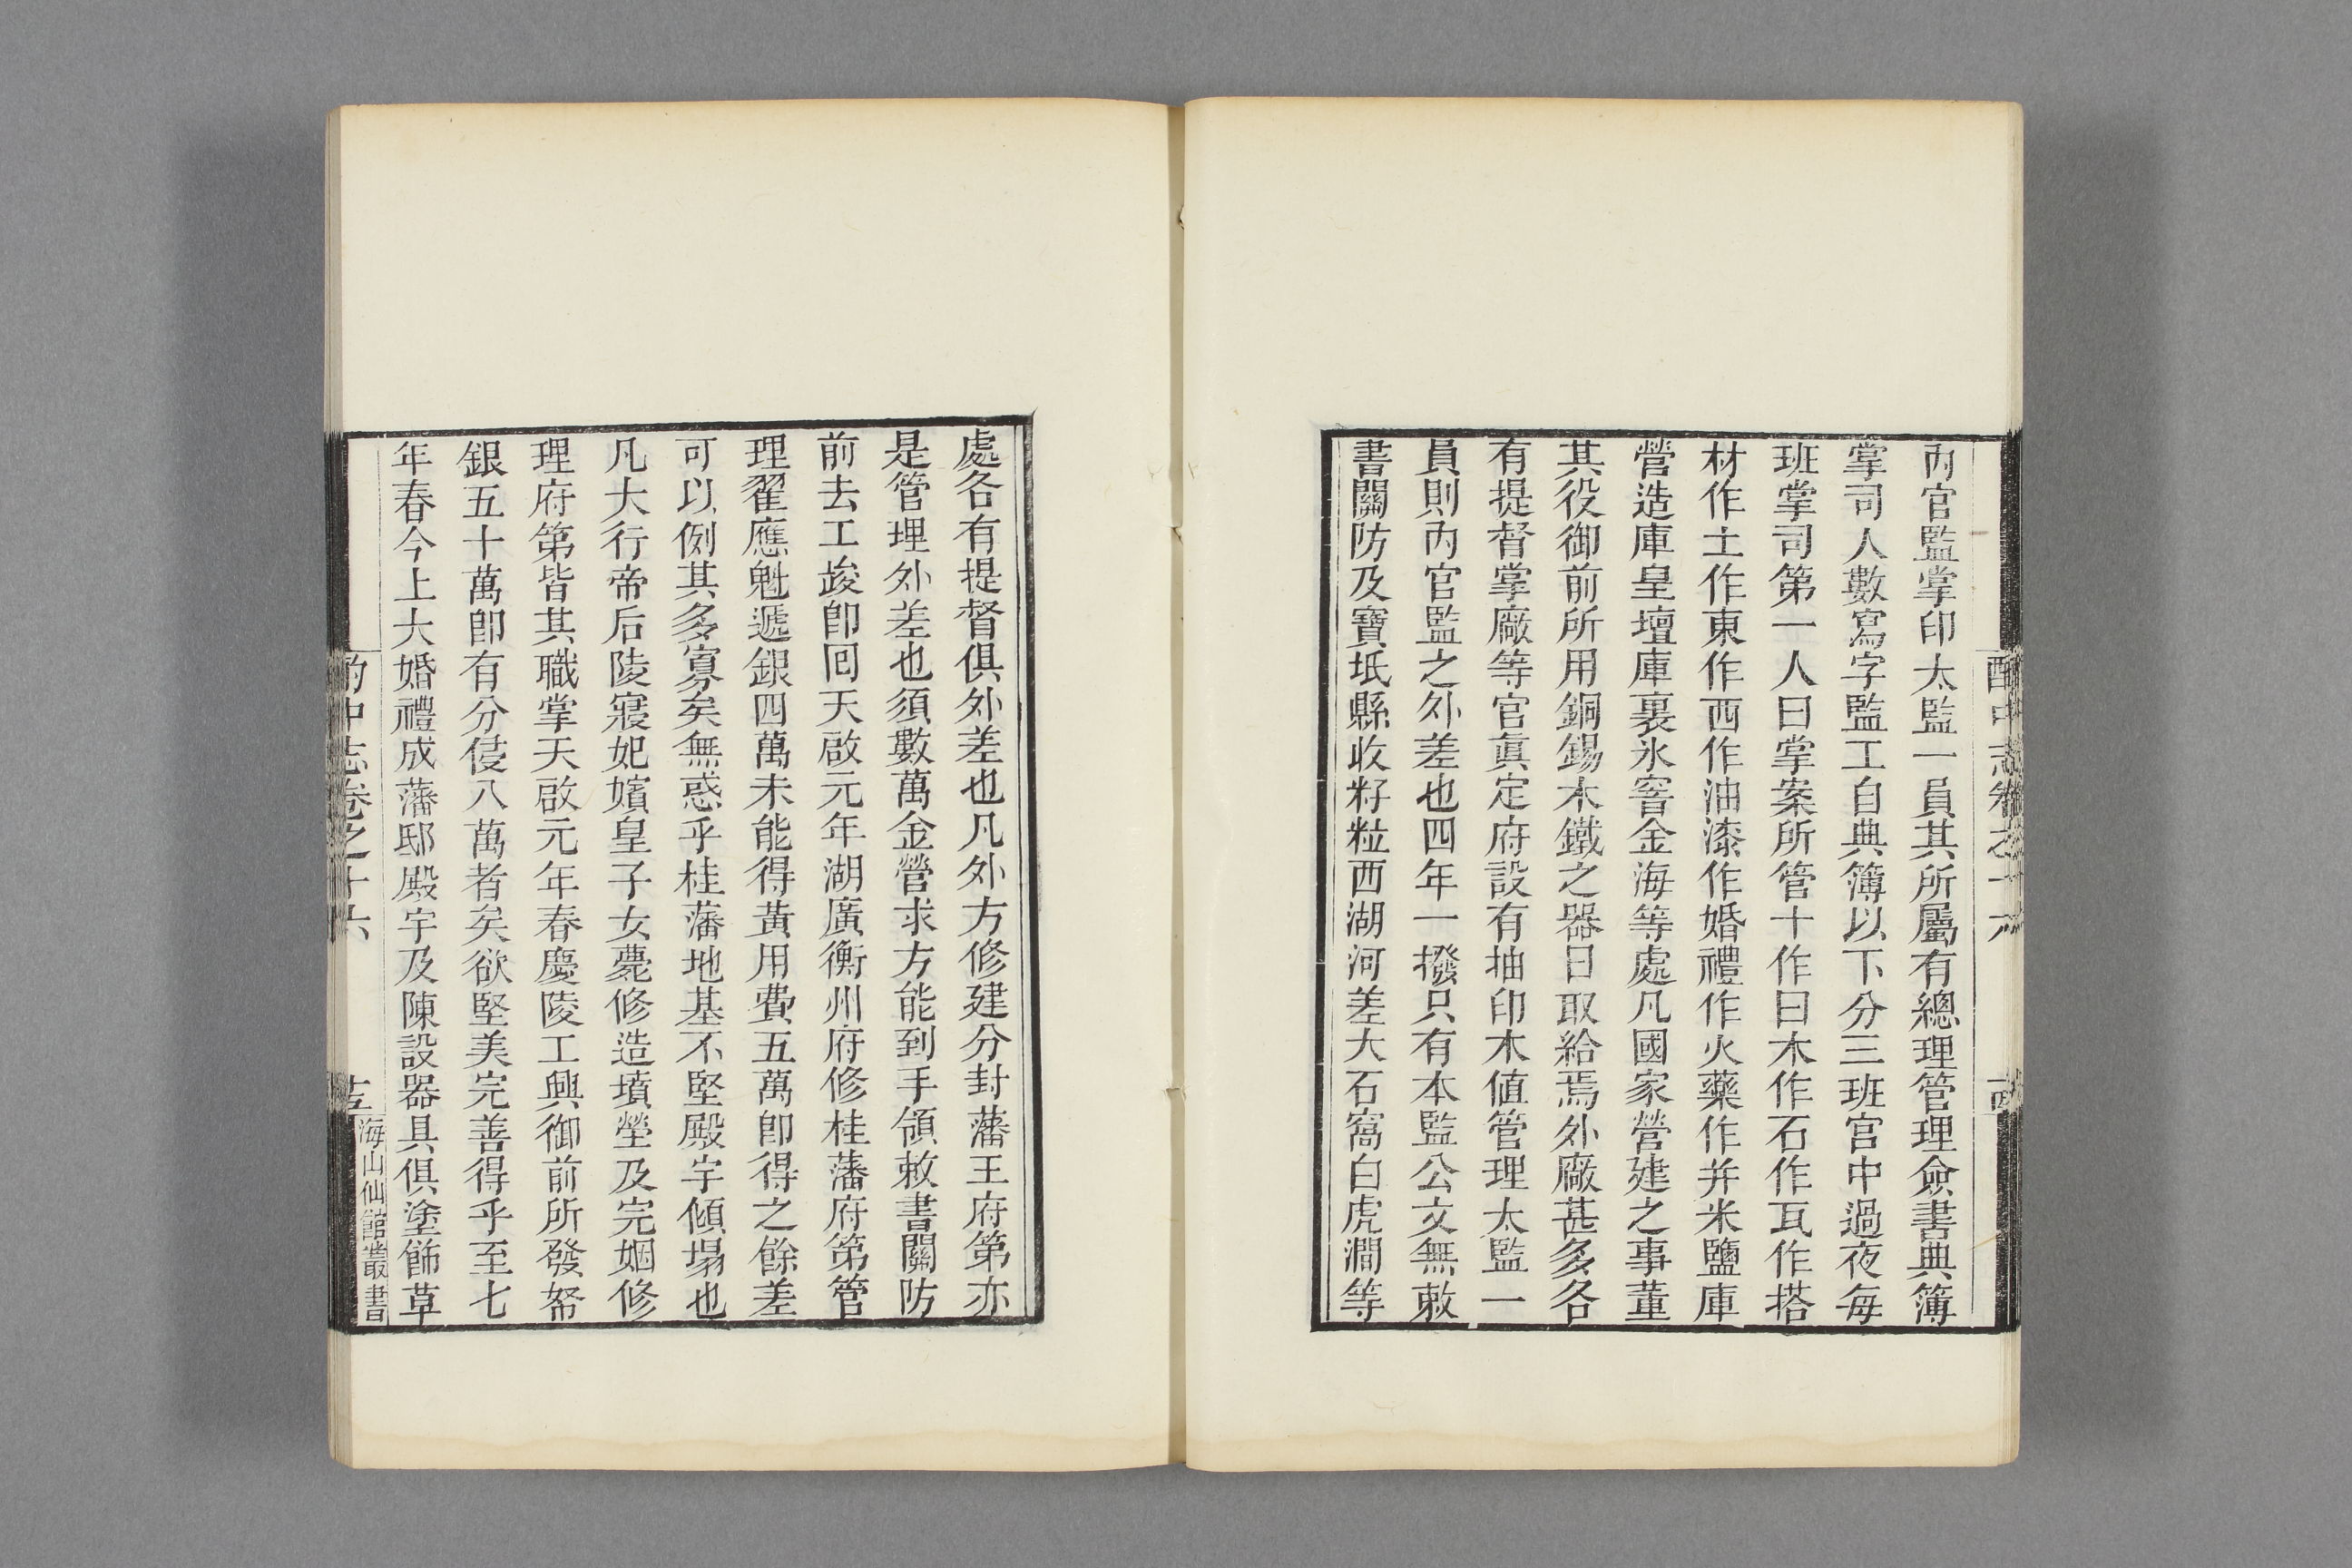 酌中志卷之十六
内官監掌印太監一員其所屬有總理管理僉書典簿
掌司人數寫字監工自典簿以下分三班宫中過夜每
班掌司第一人曰掌案所管十作曰木作石作瓦作搭
材作土作東作西作油漆作婚禮作火藥作并米鹽庫
營造庫皇壇庫裏氷窖金海等處凡國家營建之事董
其役御前所用銅錫木鐵之器日取給焉外廠甚多各
有提督掌廠等官眞定府設有抽印木値管理太監一
員則内官監之外差也四年一撥只有本監公文無敕
書關防及寶坻縣收籽粒西湖河差大石窩白虎澗等
處各有提督俱外差也凡外方修建分封藩王府第亦
是管理外差也須數萬金營求方能到手領敕書關防
前去工竣卽回天啟元年湖廣衡州府修桂藩府第管
理翟應魁遞銀四萬未能得黃用費五萬卽得之餘差
可以例其多寡矣無惑乎桂藩地基不堅殿宇傾塌也
凡大行帝后陵寢妃嬪皇子女薨修造墳塋及完姻修
理府第皆其職掌天啟元年春慶陵工興御前所發帑
銀五十萬卽有分侵八萬者矣欲堅美完善得乎至七
年春今上大婚禮成藩邸殿宇及陳設器具俱塗飾草
酌中志卷之十六
海山仙館叢書